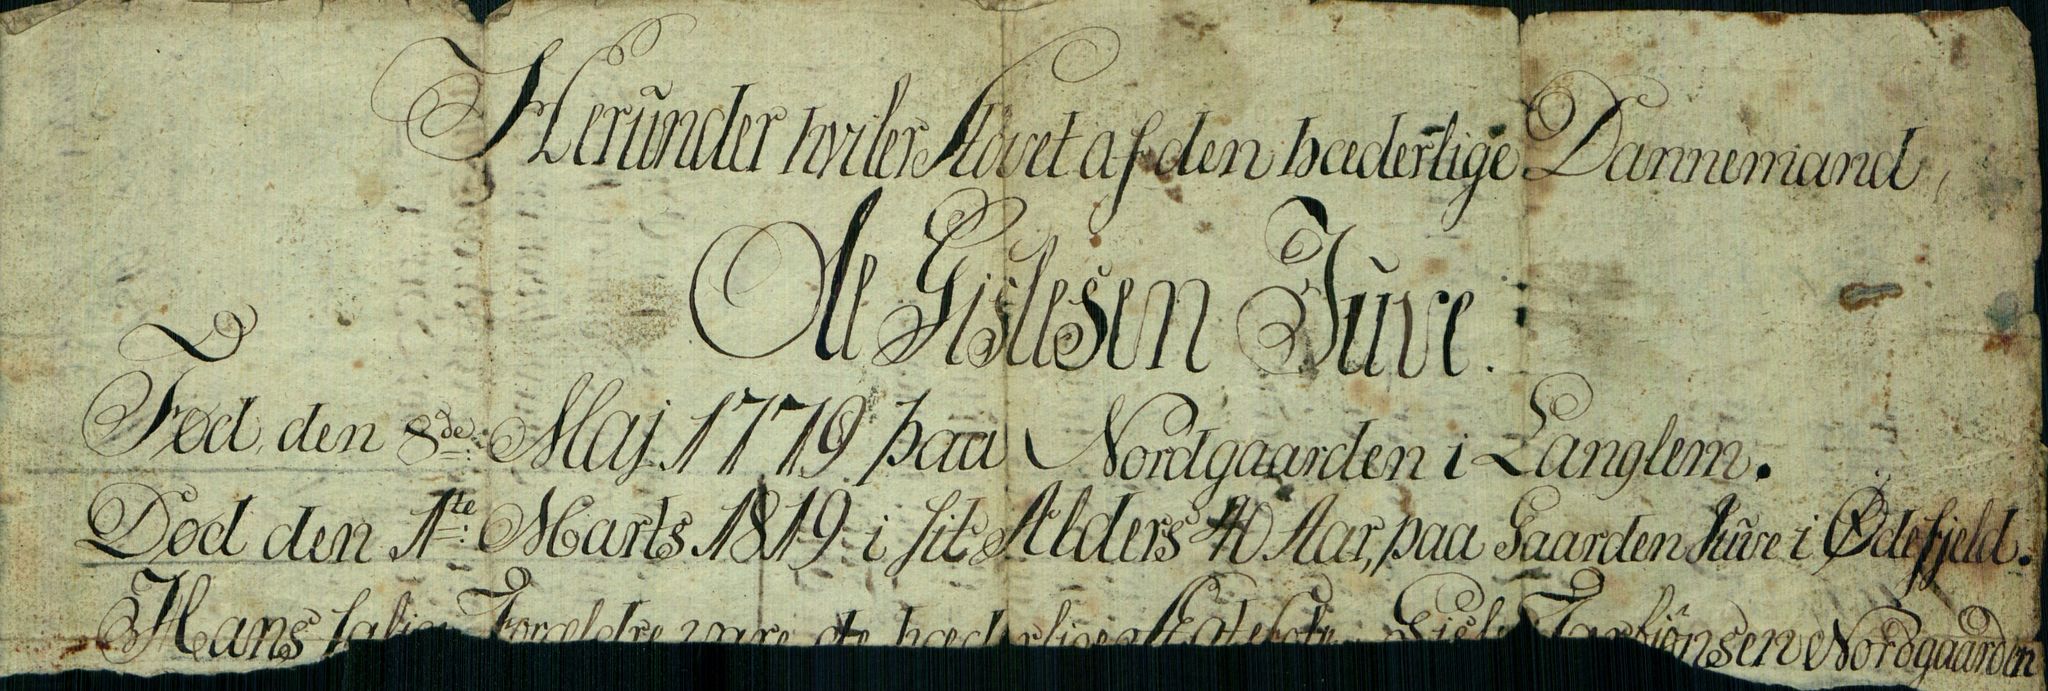 Herunder hviler Støvet af den hæderlige Dannemand,
Ole Gislesen Juve.
Fød den 8de: Maj 1779 paa Nordgaarden i Langlem.
Død den 1te: Marts 1819 i sit Alders 40 Aar, paa Gaarden Juve i Ødefjeld.
Hans salige Forældre vare de hæderlige Gisle Nordgaarden